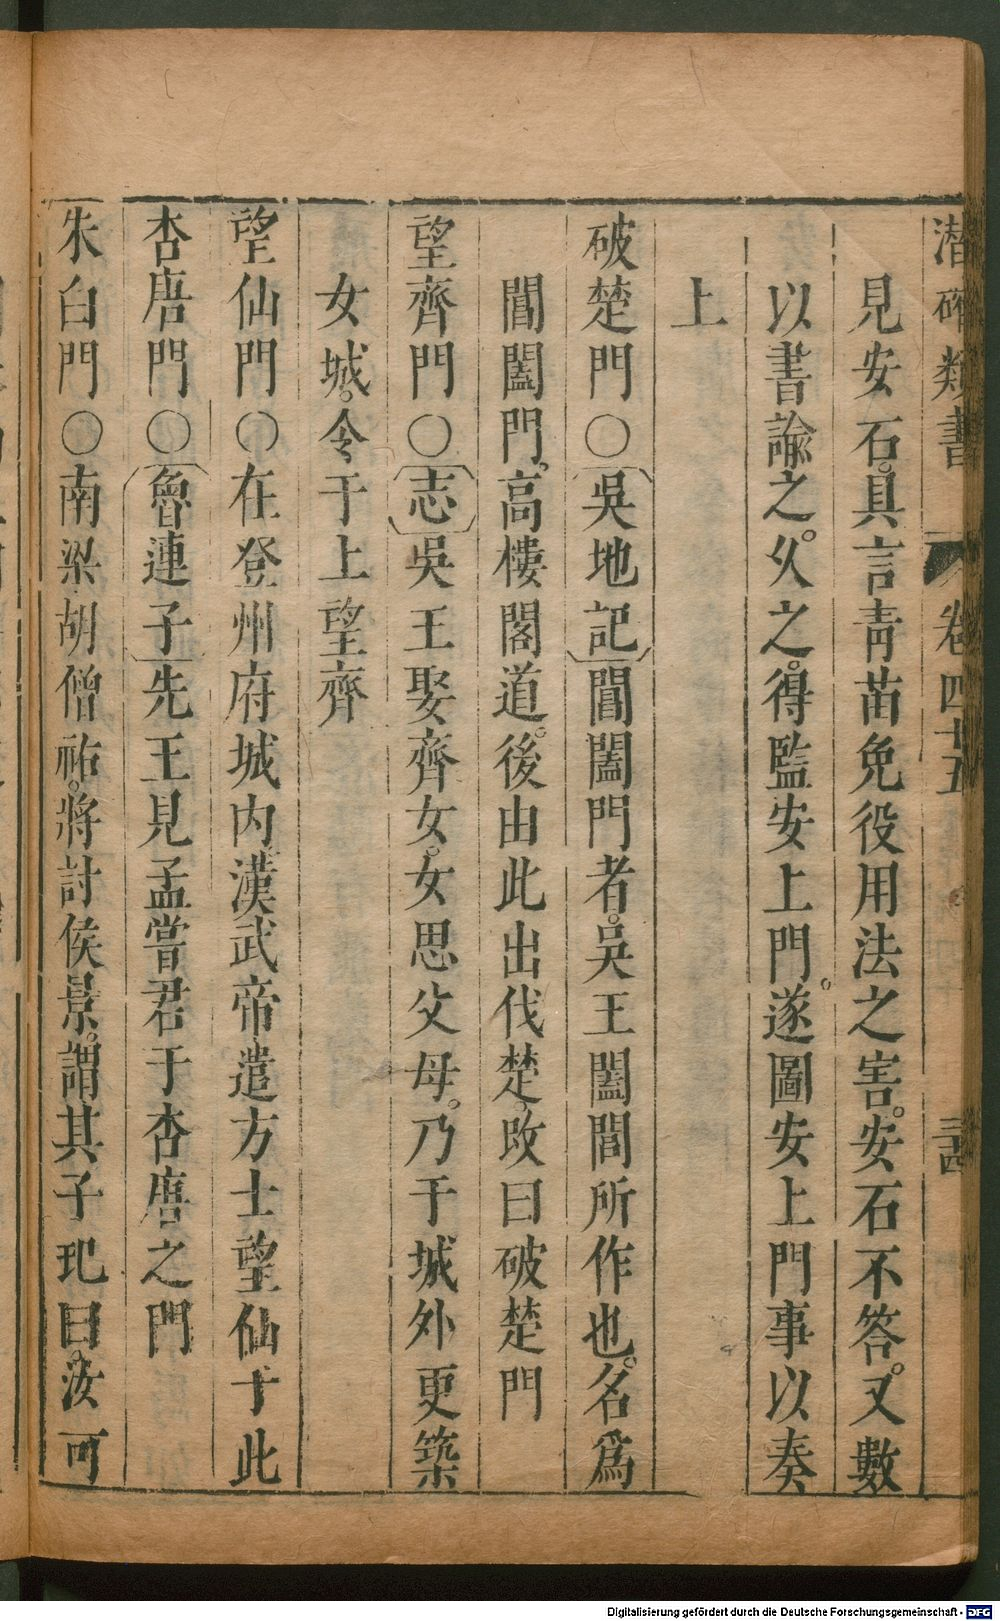 潛確類書 卷四十五 三四
見安石具言青苗免役用法之害。安石不答。又數
以書諭之。久之。得監安上門。遂圖安上門事以奏
上
破楚門〇吳地記閶闔門者。吳王闔閭所作也。名爲
閶闔門。高樓閣道。後由此出伐楚。改曰破楚門
望齊門〇志吳王娶齊女。女思父母。乃于城外更築
女城。令于上望齊
望仙門〇在登州府城內漢武帝遣方士望仙于此
杏唐門〇魯連子先王見孟嘗君于杏唐之門
朱白門〇南梁胡僧祐。將討侯景。謂其子玘曰。汝可
Digitalisierung gefördert durch die Deutsche Forschungsgemeinschaft - DFG